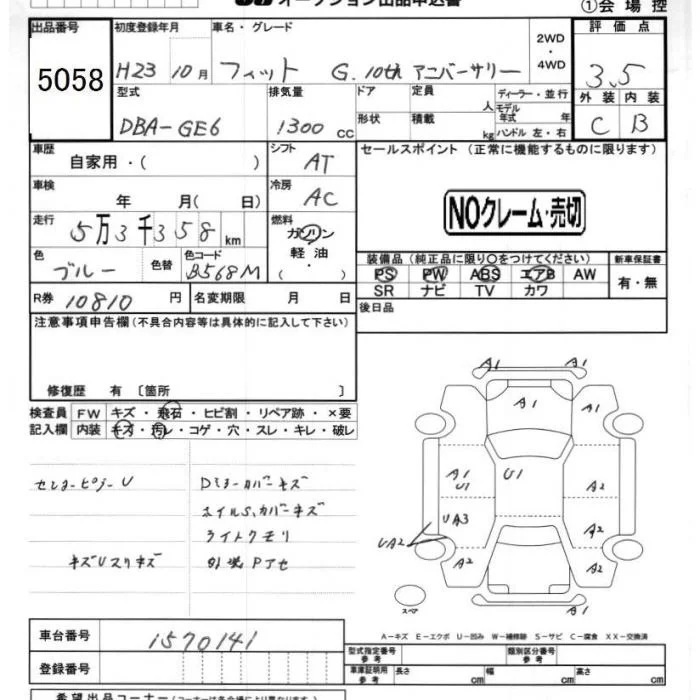 オークション出品申込書
①会場控
出品番号 初度登録年月 車名・グレード 評価点
5058 H23 10月 フィット G. 10th アニバーサリー 2WD・4WD 3.5
型式 排気量 ドア 定員 人 ディーラー・並行 外装 内装
DBA-GE6 1300 CC 形状 積載 kg モデル年式 年 ハンドル 左・右 C B
車歴 自家用・( ) シフト AT セールスポイント (正常に機能するものに限ります)
車検 年 月( 日) 冷房 AC
NOクレーム・売切
走行 5万3千358 km 燃料 ガソリン 軽油 ・( )
色 ブルー 色替 色コード B568M
装備品(純正品に限り○をつけてください) 新車保証書
PS PW ABS エアB AW 有・無
SR ナビ TV カワ
R券 10810 円 名変期限 月 日 後日品
注意事項申告欄(不具合内容等は具体的に記入して下さい)
修復歴 有 〔箇所 〕
検査員 FW キズ・飛石・ヒビ割・リペア跡・×要
記入欄 内装 キズ・汚レ・コゲ・穴・スレ・キレ・破レ
A1 A1
A1 A1
A1 U1 U1 A2
UA3 A2
UA2 A2 A2
A1
スペア
Dミラーカバーキズ
ホイルS.カバーキズ
ライトクモリ
キズUスリキズ 外装Pアセ
A-キズ E-エクボ U-凹み W-補修跡 S-サビ C-腐食 XX-交換済
車台番号 1570141
型式指定番号 参考 類別区分番号 参考
登録番号 車庫証明用 参考 長さ cm 幅 cm 高さ cm
希望出品コーナー